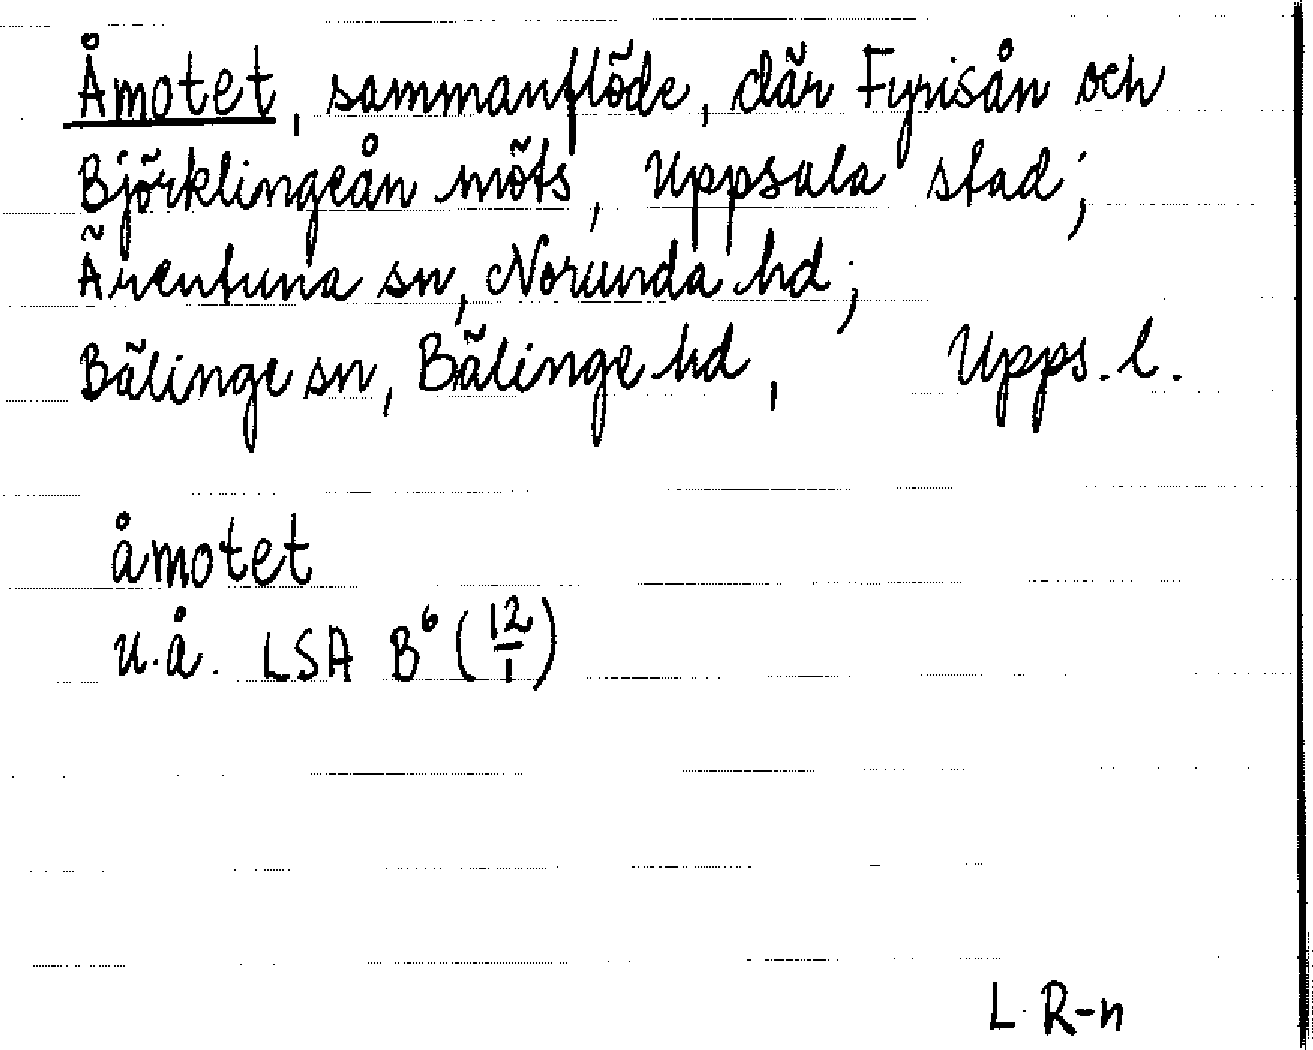 Åmotet, sammanflöde, där Fyrisån och
Björklingeån möts, Uppsala stad;
Ärentuna sn, Norunda hd;
Bälinge sn, Bälinge hd, Upps. l.
åmotet
u.å. LSA B⁶ (12/1)
L R-n